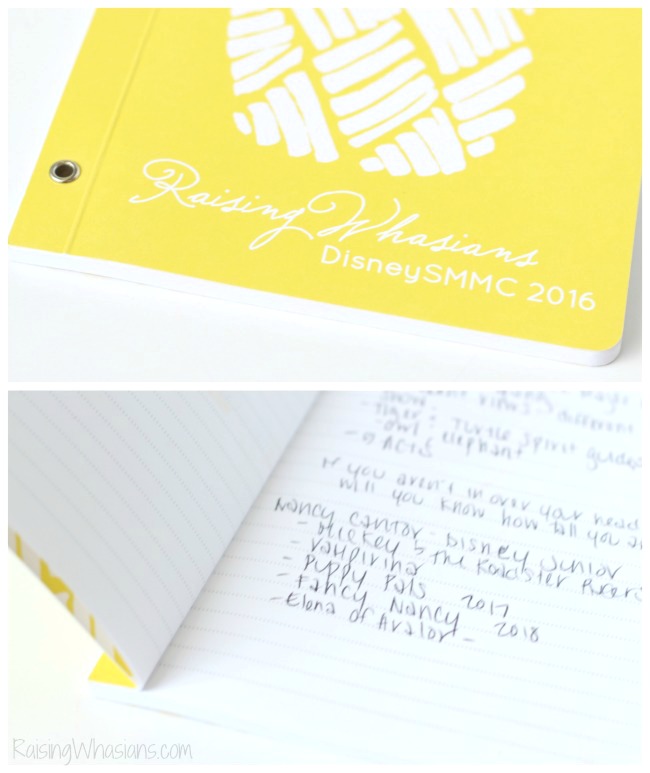 Raising Whasians
DisneySMMC 2016
show
- Tiger: Turtle Spirit guides
- owl & elephant
- 5 Acts
If you aren't in over your head
will you know how tall you
Nancy Cantor - Disney Junior
- Mickey & the Roadster Racers
- Vampirina
- Puppy Pals 2017
- Fancy Nancy 2018
- Elena of Avalor -
RaisingWhasians.com